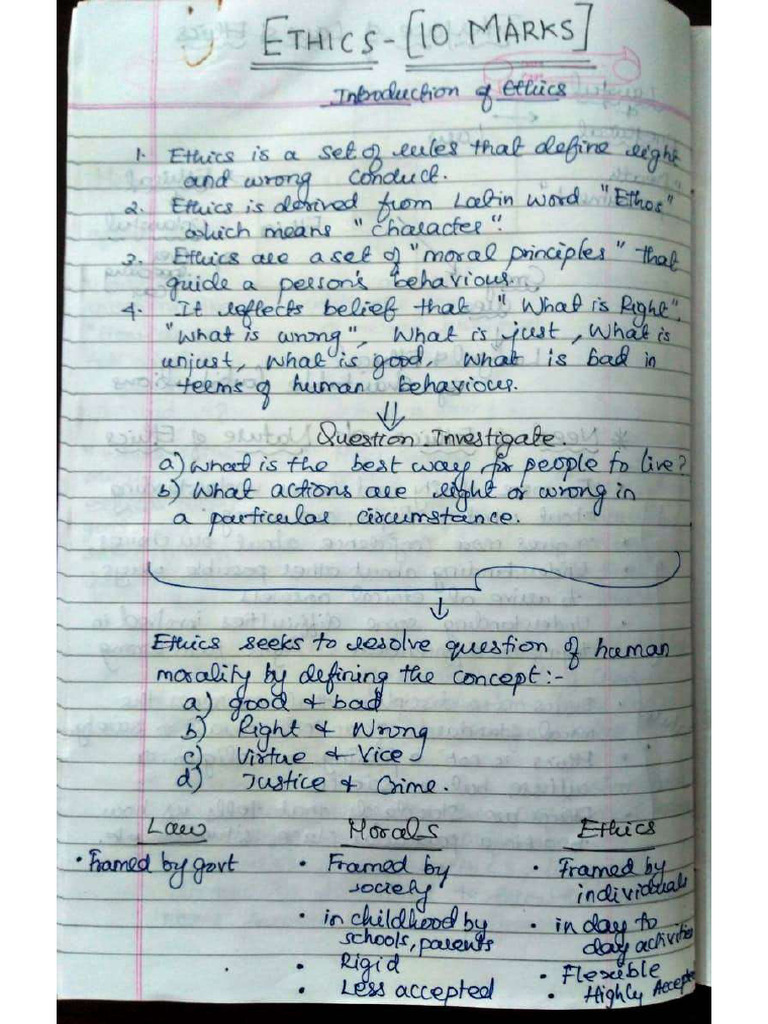 ETHICS - [10 MARKS]
Introduction of Ethics
1. Ethics is a set of rules that define right
and wrong conduct.
2. Ethics is derived from Latin word "Ethos"
which means "character".
3. Ethics are a set of "moral principles" that
guide a person's behaviour.
4. It reflects belief that "What is Right",
"What is wrong", What is just, What is
unjust, What is good, What is bad in
terms of human behaviour.
⇓
Question Investigate.
a) What is the best way for people to live?
b) What actions are right or wrong in
a particular circumstance.
↓
Ethics seeks to resolve question of human
morality by defining the concept:-
a) good & bad
b) Right & Wrong
c) Virtue & Vice
d) Justice & Crime.
Law Morals Ethics
• Framed by govt • Framed by • Framed by
society individuals
• in childhood by • in day to
schools, parents day activities
• Rigid • Flexible
• Less accepted • Highly